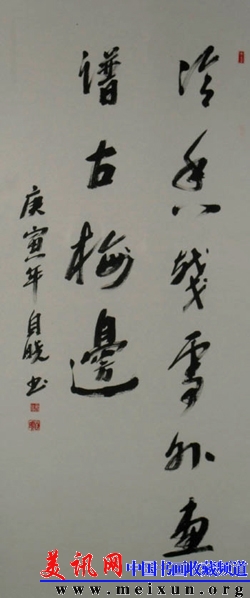 冷香殘雪外画
譜古梅邊
庚寅年自晓书
美讯网
中国书画收藏频道
www.meixun.org